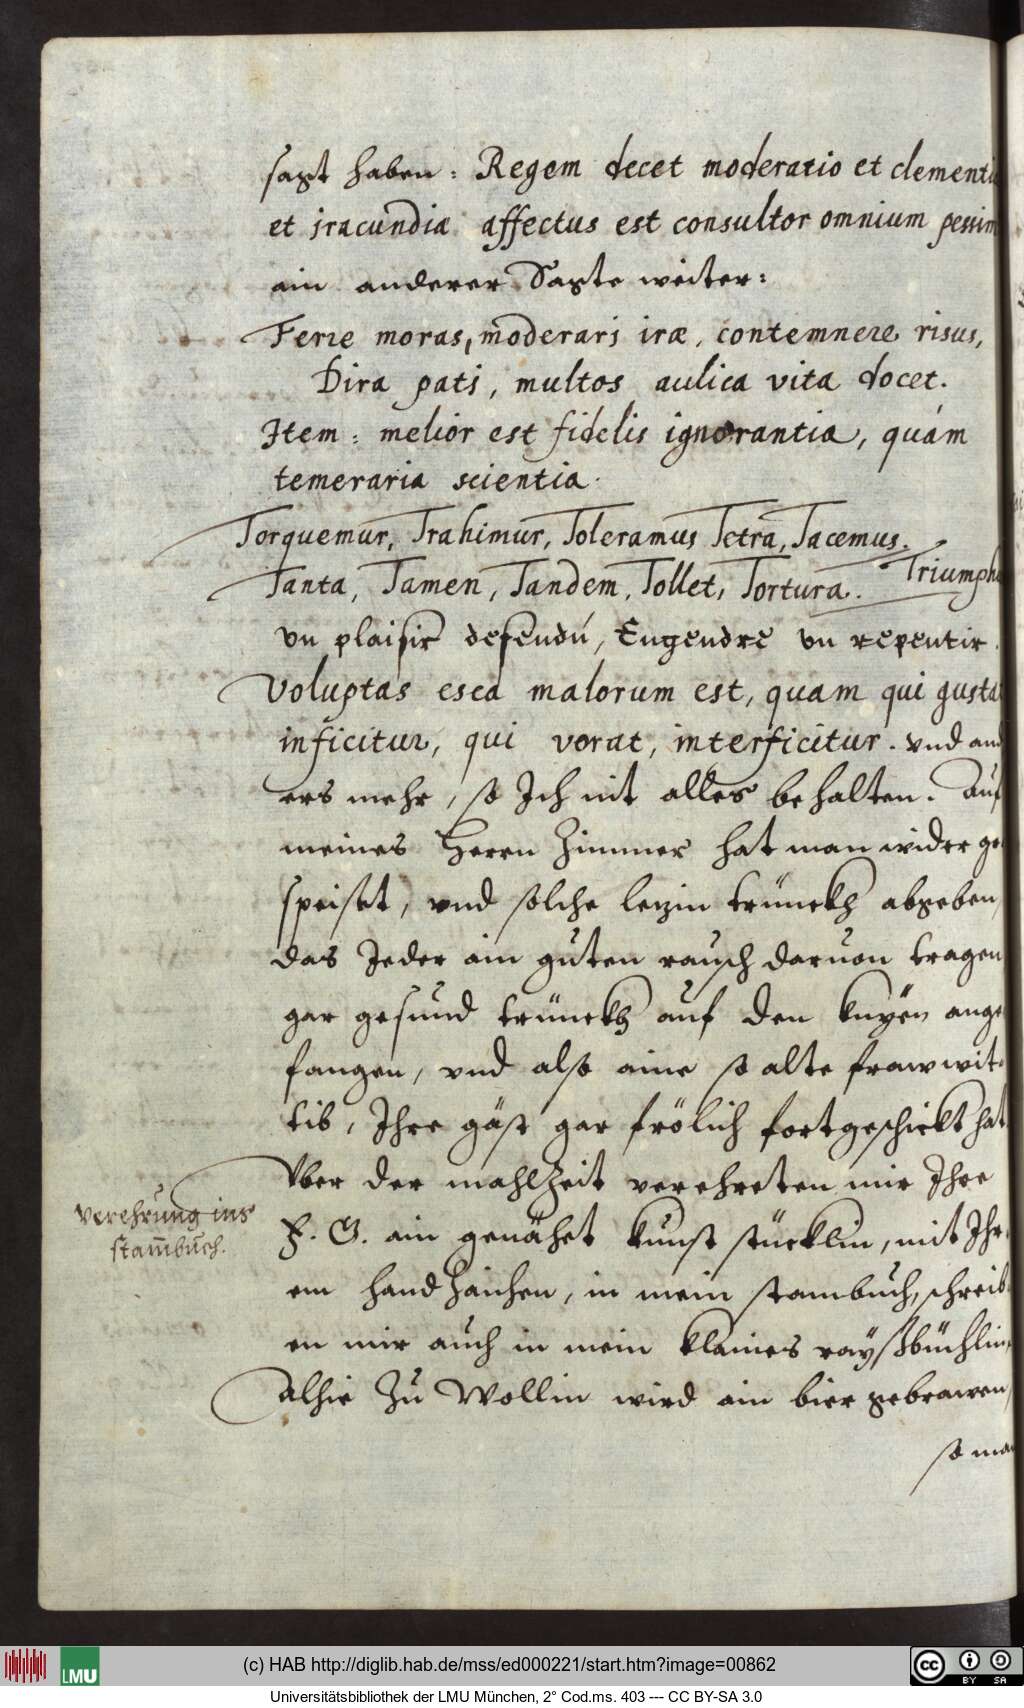 sagt haben: Regem decet moderatio et clementia
et jracundiæ affectus est consultor omnium pessim
ain anderer Sagte weiter:
Ferre moras, moderarj iræ, contemnere risus,
Dira patj, multos aulica vita docet.
Item: melior est fidelis ignorantia, quám
temeraria scientia.
Torquemur, Trahimur, Toleramus Tetra, Tacemus.
Tanta, Tamen, Tandem, Tollet, Tortura. Triumpho
Vn plaisir defendú, Engendre vn repentir.
Voluptas esca malorum est, quam qui gustat
inficitur, qui vorat, interficitur. vnd and
ers mehr, so Ich nit alles behalten. Auf
meines Herrn Zimmer hat man wider ge
speiset, vnd solche letzin trünckh abgeben,
das Jeder ain guten rausch daruon tragen
gar gesund trünckh auf den knyen ange
fangen, vnd also aine so alte fraw wit
tib, Ihre gäst gar frölich fortgeschickt hat
Vber der mahlzeit verehreten mir Ihre
verehrung ins
stam̄buch.
F. G. ain genähet kunst stücklin, mit Ihr
em handzaichen, in mein stambuch, schreib
en mir auch in mein klaines rayßbüchlin,
Alhie zu Wollin wird ain bier gebrawen,
so man
(c) HAB http://diglib.hab.de/mss/ed000221/start.htm?image=00862
LMU
cc BY SA
Universitätsbibliothek der LMU München, 2° Cod.ms. 403 --- CC BY-SA 3.0